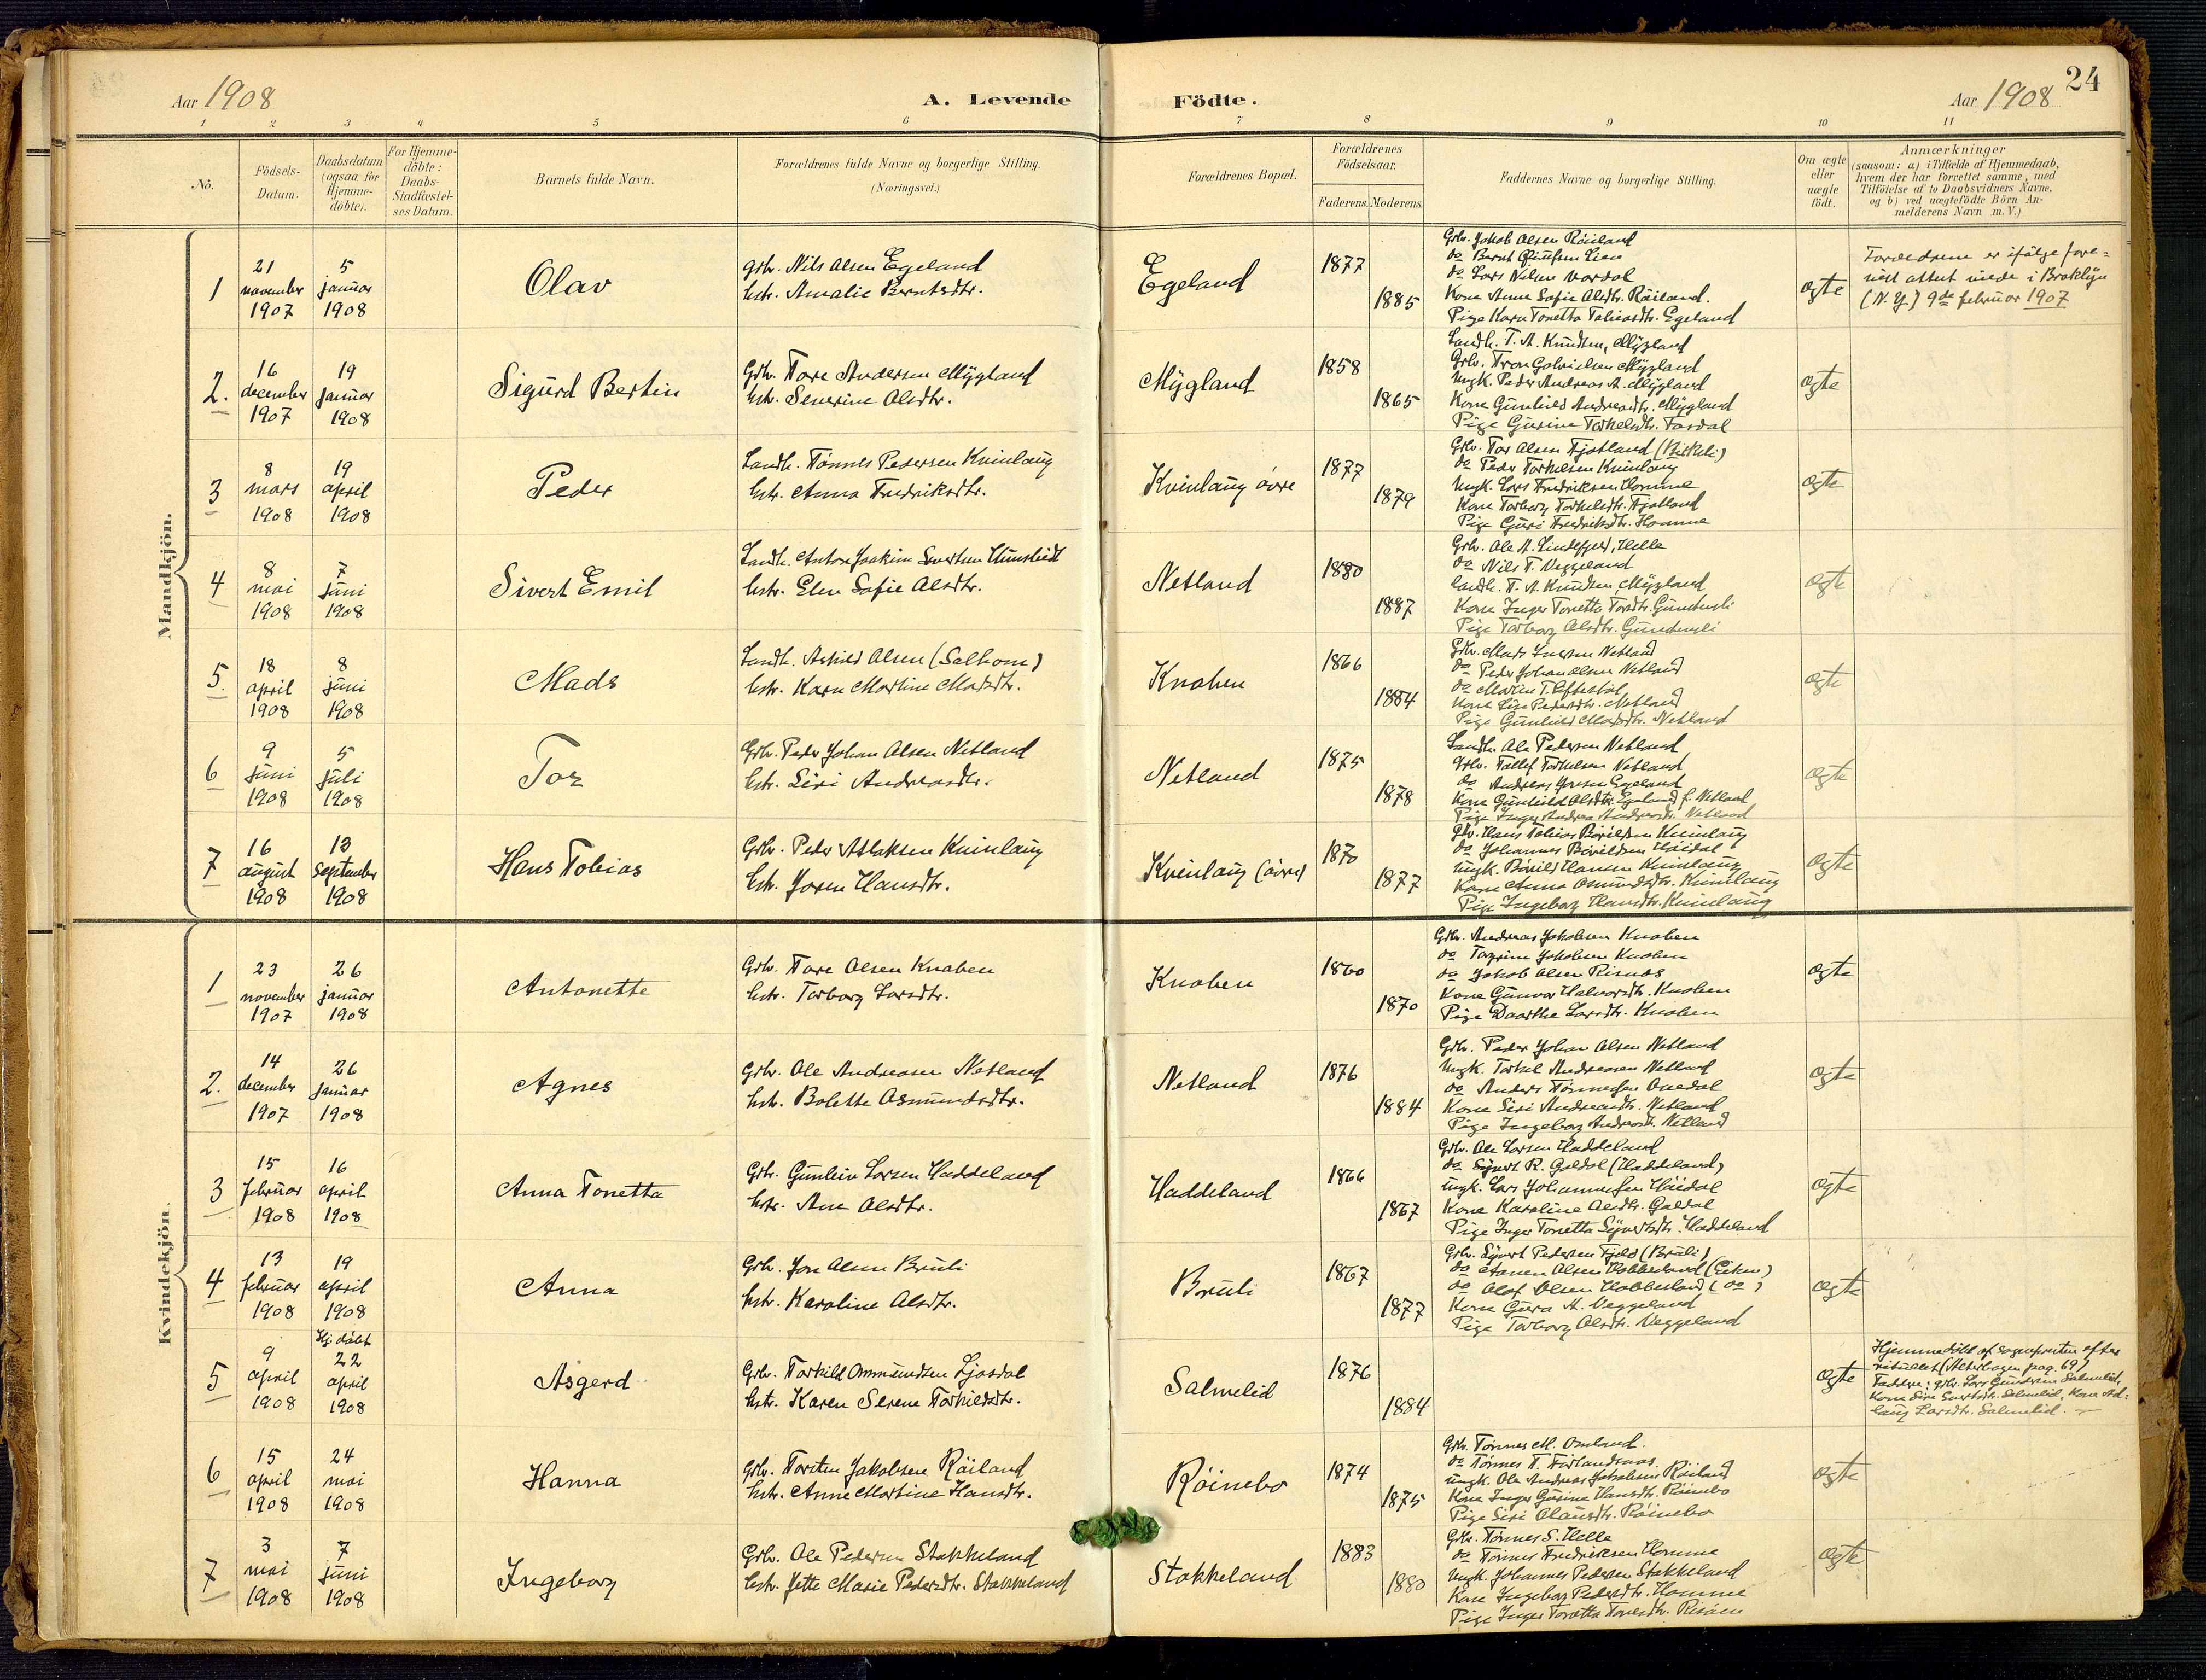 Aar 1908
A. Levende
Födte.
Aar 1908
24
1 2 3 4 5 6 7 8 9 10 11
No.
Födsels-
Datum.
Daabsdatum
(ogsaa for
Hjemme-
döbte).
For Hjemme-
döbte:
Daabs-
Stadfæstel-
ses Datum.
Barnets fulde Navn.
Forældrenes fulde Navne og borgerlige Stilling.
(Næringsvei.)
Forældrenes Bopæl.
Forældrenes
Födselsaar.
Faderens. Moderens.
Faddernes Navne og borgerlige Stilling.
Om ægte
eller
uægte
födt.
Anmærkninger
(saasom: a) i Tilfælde af Hjemmedaab,
hvem der har forrettet samme, med
Tilföielse af to Daabsvidners Navne,
og b) ved uægtefödte Börn An-
melderens Navn m. V.)
Mandkjön.
1
21
november
1907
5
januar
1908
Olav
Grbr. Nils Olsen Egeland
hstr. Amalie Berntsdtr.
Egeland
1877
1885
Grbr. Jakob Olsen Röiland
do Bernt Lien
do Lars Nilsen
Kone Anne Sofie Olsdtr. Röiland.
Pige Karn Tonetta Tobiasdtr. Egeland
ægte
Forældrene er ifølge fore-
vist attest viede i Broklyn
(N.Y.) 9de februar 1907
2.
16
december
1907
19
januar
1908
Sigurd Bertin
Grbr. Tore Andersen Mygland
hstr. Severine Olsdtr.
Mygland
1858
1865
Landh. T. A. Knudsen, Mygland
Grbr. Tron Gabrielsen Mygland
Ungk. Peder Andreas A. Mygland
Kone Gunhild Andreasdtr. Mygland
Pige Gurine Torkelsdtr.
ægte
3
8
mars
1908
19
april
1908
Peder
Landh. Tönnes Pedersen Kvinlaug
hstr. Anna Fredriksdtr.
Kvinlaug övre
1877
1879
Grbr. Tor Olsen Fjotland (Birkeli)
do Peder Torkelsen Kvinlaug
Ungk. Lars Fredriksen Homme
Kone Torborg Torkelsdtr. Fjotland
Pige Guri Fredriksdtr. Homme
ægte
4
8
mai
1908
7
juni
1908
Sivert Emil
Landh. Anton Joakim Sivertsen
hstr. Elen Sofie Olsdtr.
Netland
1880
1887
Grbr. Ole A. Lindefjeld, Helle
do Nils T. Veggeland
Landh. T. A. Knudsen, Mygland
Kone Inger Tonetta Torsdtr.
Pige Torborg Olsdtr.
ægte
5.
18
april
1908
8
juni
1908
Mads
Landh. Askild Olsen (Salhom)
hstr. Karn Martine Madsdtr.
Knaben
1866
1884
Grbr. Mads Netland
do Peder Johan Olsen Netland
do Martin T. Eftestöl
Kone Pedersdtr. Netland
Pige Gunhild Madsdtr. Netland
ægte
6
9
juni
1908
5
juli
1908
Tor
Grbr. Peder Johan Olsen Netland
hstr. Siri Andreasdtr.
Netland
1875
1878
Landh. Ole Pedersen Netland
Grbr. Tallef Torkelsen Netland
do Andreas Egeland
Kone Gunhild Olsdtr. Egeland f. Netland
Pige Inger Andrea Andreasdtr. Netland
ægte
7
16
august
1908
13
september
1908
Hans Tobias
Grbr. Peder Aslaksen Kvinlaug
hstr. Joren Hansdtr.
Kvinlaug (övre)
1870
1877
Grbr. Hans Tobias Bövildsen Kvinlaug
do Johannes Bövildsen Höidal
Ungk. Bövild Hansen Kvinlaug
Kone Anna Osmundsdtr. Kvinlaug
Pige Ingeborg Hansdtr. Kvinlaug
ægte
Kvindekjön.
1
23
november
1907
26
januar
1908
Antonette
Grbr. Tore Olsen Knaben
hstr. Torborg Larsdtr.
Knaben
1860
1870
Grbr. Andreas Jakobsen Knaben
do Jakobsen Knaben
do Jakob Olsen Risnes
Kone Gunvor Halvorsdtr. Knaben
Pige Daarthe Larsdtr. Knaben
ægte
2.
14
december
1907
26
januar
1908
Agnes
Grbr. Ole Andreasen Netland
hstr. Bolette Osmundsdtr.
Netland
1876
1884
Grbr. Peder Johan Olsen Netland
Ungk. Torkel Andreasen Netland
do Anders Tönnesen
Kone Siri Andreasdtr. Netland
Pige Ingeborg Andreasdtr. Netland
ægte
3
15
februar
1908
16
april
1908
Anna Tonetta
Grbr. Gunleiv Larsen Haddeland
hstr. Ane Olsdtr.
Haddeland
1866
1867
Grbr. Ole Larsen Haddeland
do Syvert R. Galdal (Haddeland)
Ungk. Lars Johannesen Höidal
Kone Karoline Olsdtr. Galdal
Pige Inger Tonetta Syvertsdtr. Haddeland
ægte
4
13
februar
1908
19
april
1908
Anna
Grbr. Jon Olsen Bruli
hstr. Karoline Olsdtr.
Bruli
1867
1877
Grbr. Syvert Pedersen Fjeld (Bruli)
do Olsen (Eiken)
do Olaf Olsen (do)
Kone Guro A. Veggeland
Pige Torborg Olsdtr. Veggeland
ægte
5
9
april
1908
Hj. döbt
22
april
1908
Asgerd
Grbr. Torkild Ommundsen Ljosdal
hstr. Karen Serene Torkildsdtr.
Salmelid
1876
1884
ægte
Hjemmedöbt af sognepresten efter
ritualet (Alterbogen pag. 69)
Faddere: grbr. Lars Gundersen Salmelid,
Kone Siri Sivertsdtr. Salmelid, Kone Ad-
laug Larsdtr. Salmelid.
6
15
april
1908
24
mai
1908
Hanna
Grbr. Torsten Jakobsen Röiland
hstr. Anne Martine Hansdtr.
Röinebo
1874
1875
Grbr. Tönnes M. Omland.
do Tönnes T.
Ungk. Ole Andreas Jakobsen Röiland
Kone Inger Gurine Hansdtr. Röinebo
Pige Siri Olausdtr. Röinebo
ægte
7
3
mai
1908
7
juni
1908
Ingeborg
Grbr. Ole Pedersen Stakkeland
hstr. Jette Marie Pedersdtr. Stakkeland
Stakkeland
1883
1880
Grbr. Tönnes S. Helle
do Tönnes Fredriksen Homme
Ungk. Johannes Pedersen Stakkeland
Kone Ingeborg Pedersdtr. Homme
Pige Inger Tonetta Tonesdtr. Risöen
ægte